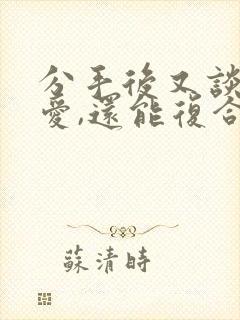 分手後又談
愛,還能復合
蘇清時